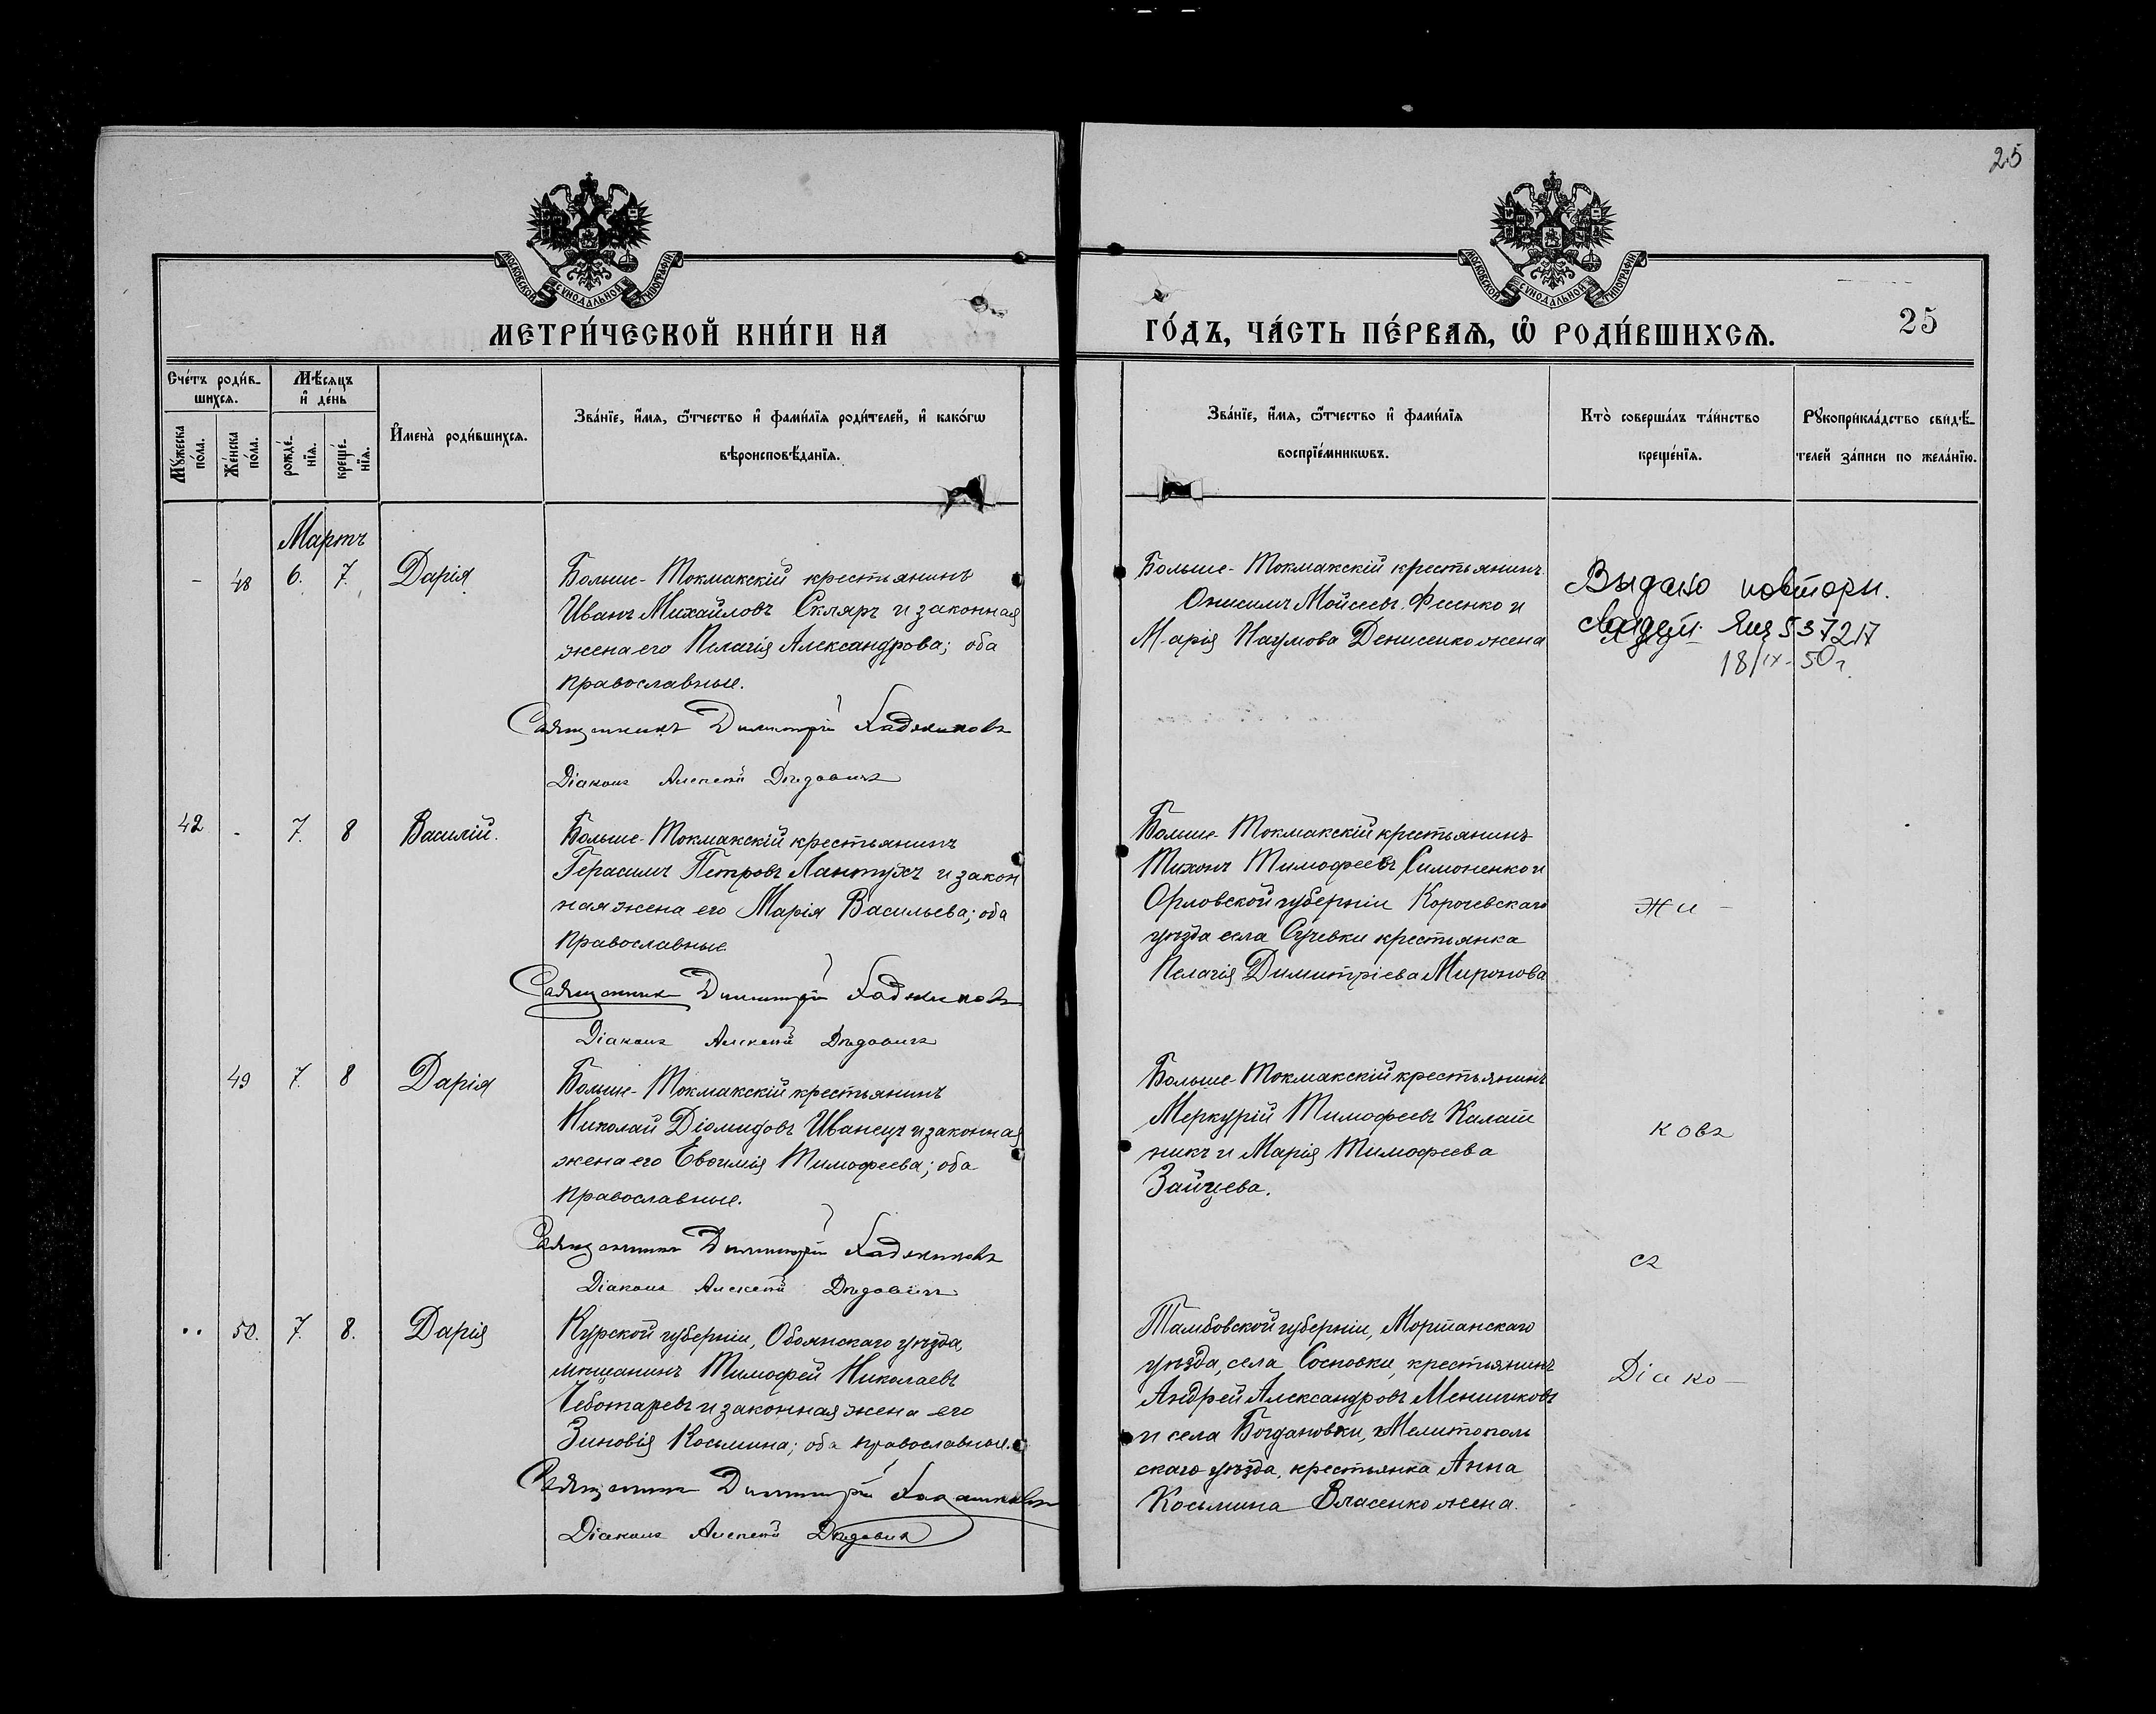 25
МОСКОВСКОЙ СѴНОДАЛЬНОЙ ТИПОГРАФІИ
МОСКОВСКОЙ СѴНОДАЛЬНОЙ ТИПОГРАФІИ
МЕТРИ́ЧЕСКОЙ КНИ́ГИ НА
ГО́ДЪ, ЧА́СТЬ ПЕ́РВАѦ, Ѡ҆ РОДИ́ВШИХСѦ.
25
Сче́тъ роди́в-
шихсѧ.
Мꙋ́жеска
по́ла.
Же́нска
по́ла.
Мѣ́сѧцъ
и҆ де́нь
рожде́-
нїѧ.
креще́-
нїѧ.
И҆мена̀ роди́вшихсѧ.
Зва́нїе, и҆́мѧ, ѻ҆́тчество и҆ фами́лїѧ роди́телей, и҆ како́гѡ
вѣроисповѣ́данїѧ.
Зва́нїе, и҆́мѧ, ѻ҆́тчество и҆ фами́лїѧ
воспрїе́мникѡвъ.
Кто̀ соверша́лъ та́инство
креще́нїѧ.
Рꙋкоприкла́дство свидѣ́-
телей за́писи по жела́нїю.
Мартъ
- 48 6. 7. Дарія
Больше-Токмакскій крестьянинъ
Иванъ Михайловъ Скляръ и законная
жена его Пелагія Александрова; оба
православные.
Священникъ Димитрій Хаджиновъ
Діаконъ Алексѣй Дѣдовичъ
Больше-Токмакскій крестьянинъ
Онисимъ Мойсеевъ Феенко и
Марія Наумова Денисенко жена
Выдано повторн.
537217
18/IX-50г.
42 - 7. 8 Василій.
Больше-Токмакскій крестьянинъ
Герасимъ Петровъ Лантухъ и закон
ная жена его Марія Васильева; оба
православные
Священникъ Димитрій Хаджиновъ
Діаконъ Алексѣй Дѣдовичъ
Больше-Токмакскій крестьянинъ
Тихонъ Тимофеевъ Симоненко и
Орловской губерніи Корочевскаго
уѣзда села Сучевки крестьянка
Пелагія Димитріева Миронова
жи-
49 7. 8 Дарія
Больше-Токмакскій крестьянинъ
Николай Діомидовъ Иванецъ и законная
жена его Евѳимія Тимофеева; оба
православные.
Священникъ Димитрій Хаджиновъ
Діаконъ Алексѣй Дѣдовичъ
Больше-Токмакскій крестьянинъ
Меркурій Тимофеевъ Калаш
никъ и Марія Тимофеева
Зайцева.
ковъ
съ
50. 7. 8. Дарія
Курской губерніи, Обоянскаго уѣзда,
мѣщанинъ Тимофей Николаевъ
Чеботаревъ и законная жена его
Зиновія Косьмина; оба православные.
Священникъ Димитрій Хаджиновъ
Діаконъ Алексѣй Дѣдовичъ
Тамбовской губерніи, Моршанскаго
уѣзда, села Сосновки, крестьянинъ
Андрей Александровъ Меншиковъ
и села Богдановки, Мелитополь
скаго уѣзда, крестьянка Анна
Косьмина Власенко жена.
Діако-